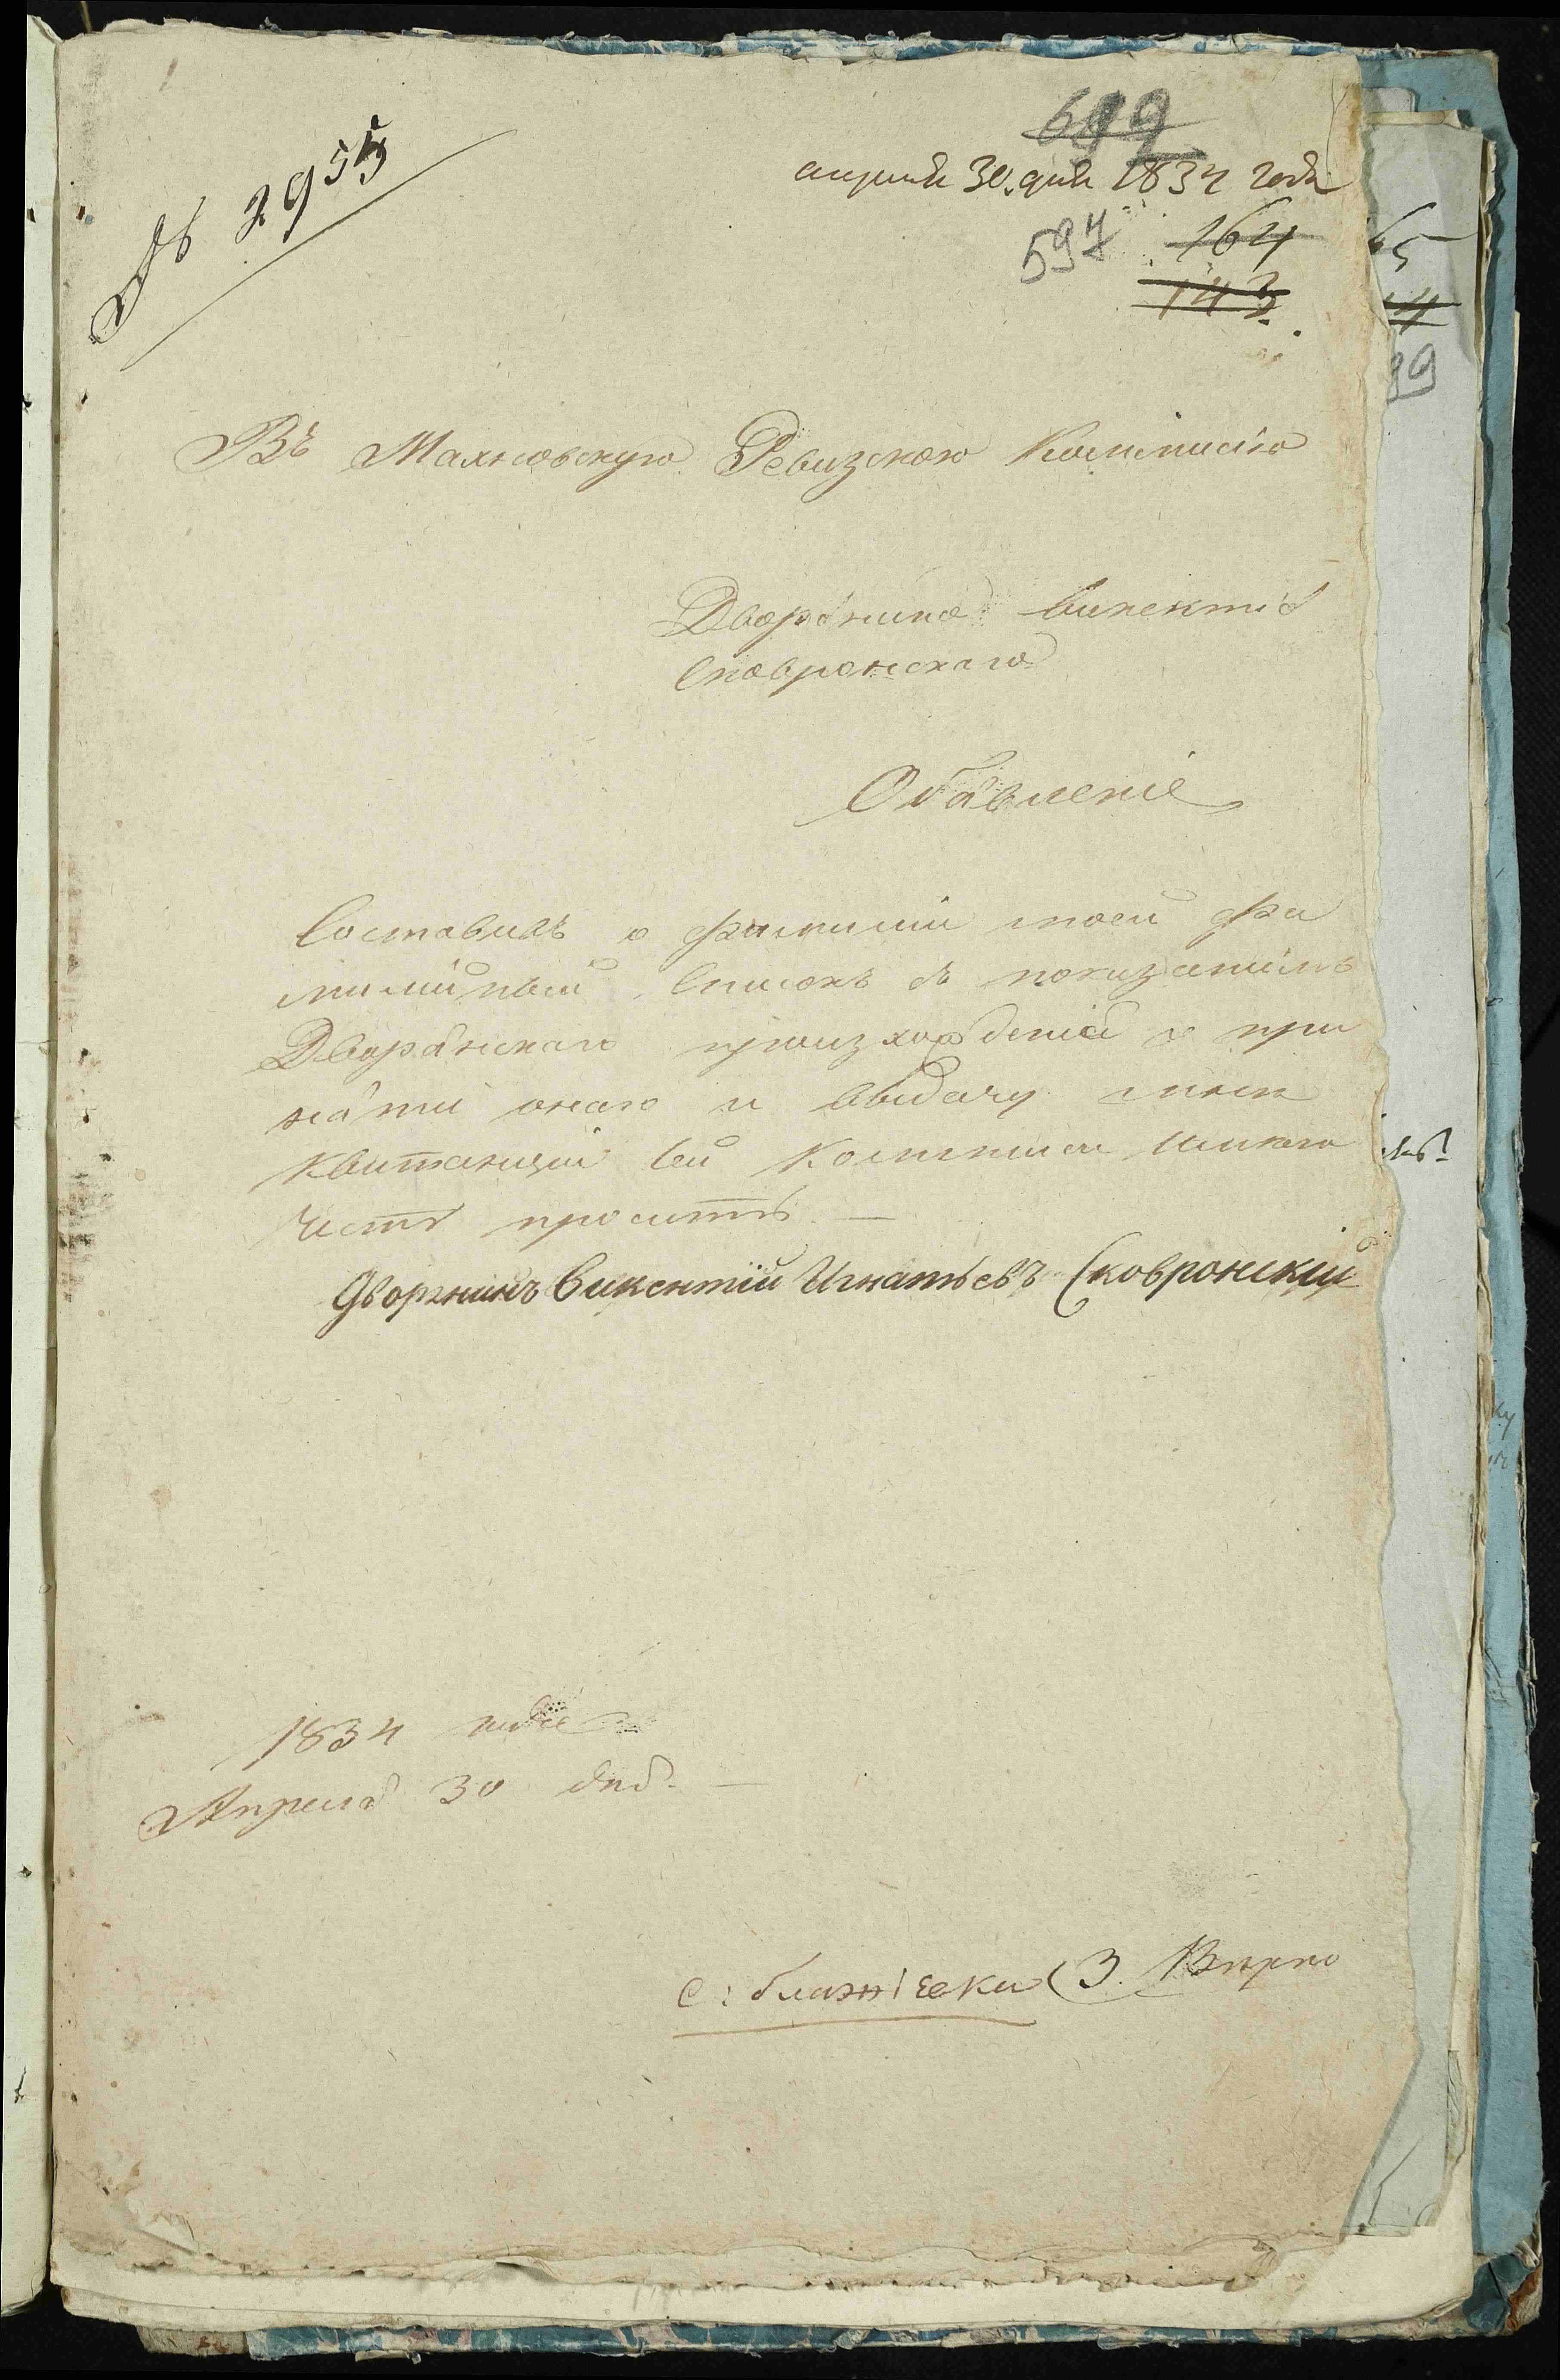 № 2955
699
апреля 30. дня 1834 года
597 164
143
Въ Махновскую Ревизскою Коммисію
Дворянина Викентія
Сковронскаго
Обявленіе
Составивъ о фамиліи моей фа
милійный Списокъ съ показаніемъ
Дворянскаго произхожденія о при
няти онаго и выдачу мнѣ
Квитанціи Сей Коммисіи имѣю
Честь просить. —
Дворянинъ Викентій Игнатьевъ Сковронскій
1834 года
Апреля 30 дня. —
с: ближіека З.